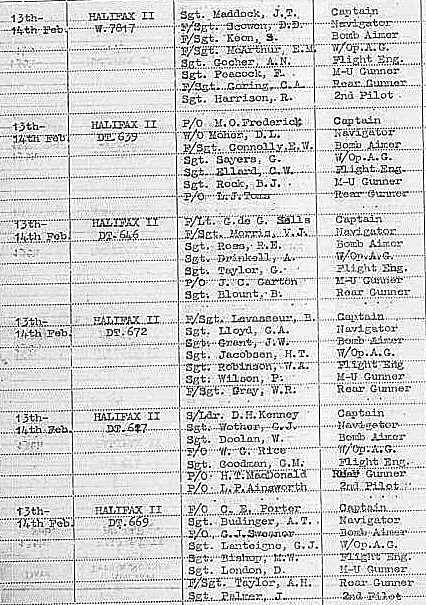 13th- HALIFAX II Sgt. Maddock, J.T. Captain
14th Feb. W.7817 F/Sgt. Scowen, D.D. Navigator
F/Sgt. Keon, S. Bomb Aimer
F/Sgt. McArthur, E.M. W/Op.A.G.
Sgt. Gocher, A.N. Flight Eng.
Sgt. Peacock, F. M-U Gunner
F/Sgt. Goring, C.A. Rear Gunner
Sgt. Harrison, R. 2nd Pilot
13th- HALIFAX II P/O M.O.Frederick Captain
14th Feb. DT.639 W/O Moher, D.L. Navigator
F/Sgt. Connolly,E.W. Bomb Aimer
Sgt. Sayers, G. W/Op.A.G.
Sgt. Ellard, C.W. Flight Eng.
Sgt. Rock, B.J. M-U Gunner
P/O L.J.Toms Rear Gunner
13th- HALIFAX II F/Lt. G.de C. Sells Captain
14th Feb. DT.646 F/Sgt. Morris, V.J. Navigator
Sgt. Ross, R.E. Bomb Aimer
Sgt. Drinkell, A. W/Op.A.G.
Sgt. Taylor, G. Flight Eng.
P/O J. C. Carton M-U Gunner
Sgt. Blount, B. Rear Gunner
13th- HALIFAX II F/Sgt. Levasseur, B. Captain
14th Feb. DT.672 Sgt. Lloyd, G.A. Navigator
Sgt. Grant, J.W. Bomb Aimer
Sgt. Jacobsen, H.T. W/Op.A.G.
Sgt. Robinson, W.A. Flight Eng
Sgt. Wilson, P. M-U Gunner
F/Sgt. Gray, W.R. Rear Gunner
13th- HALIFAX II S/Ldr. D.H.Kenney Captain
14th Feb. Sgt. Wother, G.J. Navigator
Sgt. Doolan, W. Bomb Aimer
F/O W. G. Rice W/Op.A.G.
Sgt. Goodman, G.M. Flight Eng.
P/O H.T.MacDonald Gunner
P/O L.P.Ainsworth 2nd Pilot
13th- HALIFAX II F/O C. E. Porter Captain
14th Feb. DT.669 Sgt. Budinger, A.T. Navigator
F/O G.J.Sweaner Bomb Aimer
Sgt. Lanteigne, G.J. W/Op.A.G.
Sgt. Bishop, M.W. Flight Eng.
Sgt. London, D. M-U Gunner
F/Sgt. Taylor, A.H. Rear Gunner
Sgt. Palmer, J. 2nd Pilot